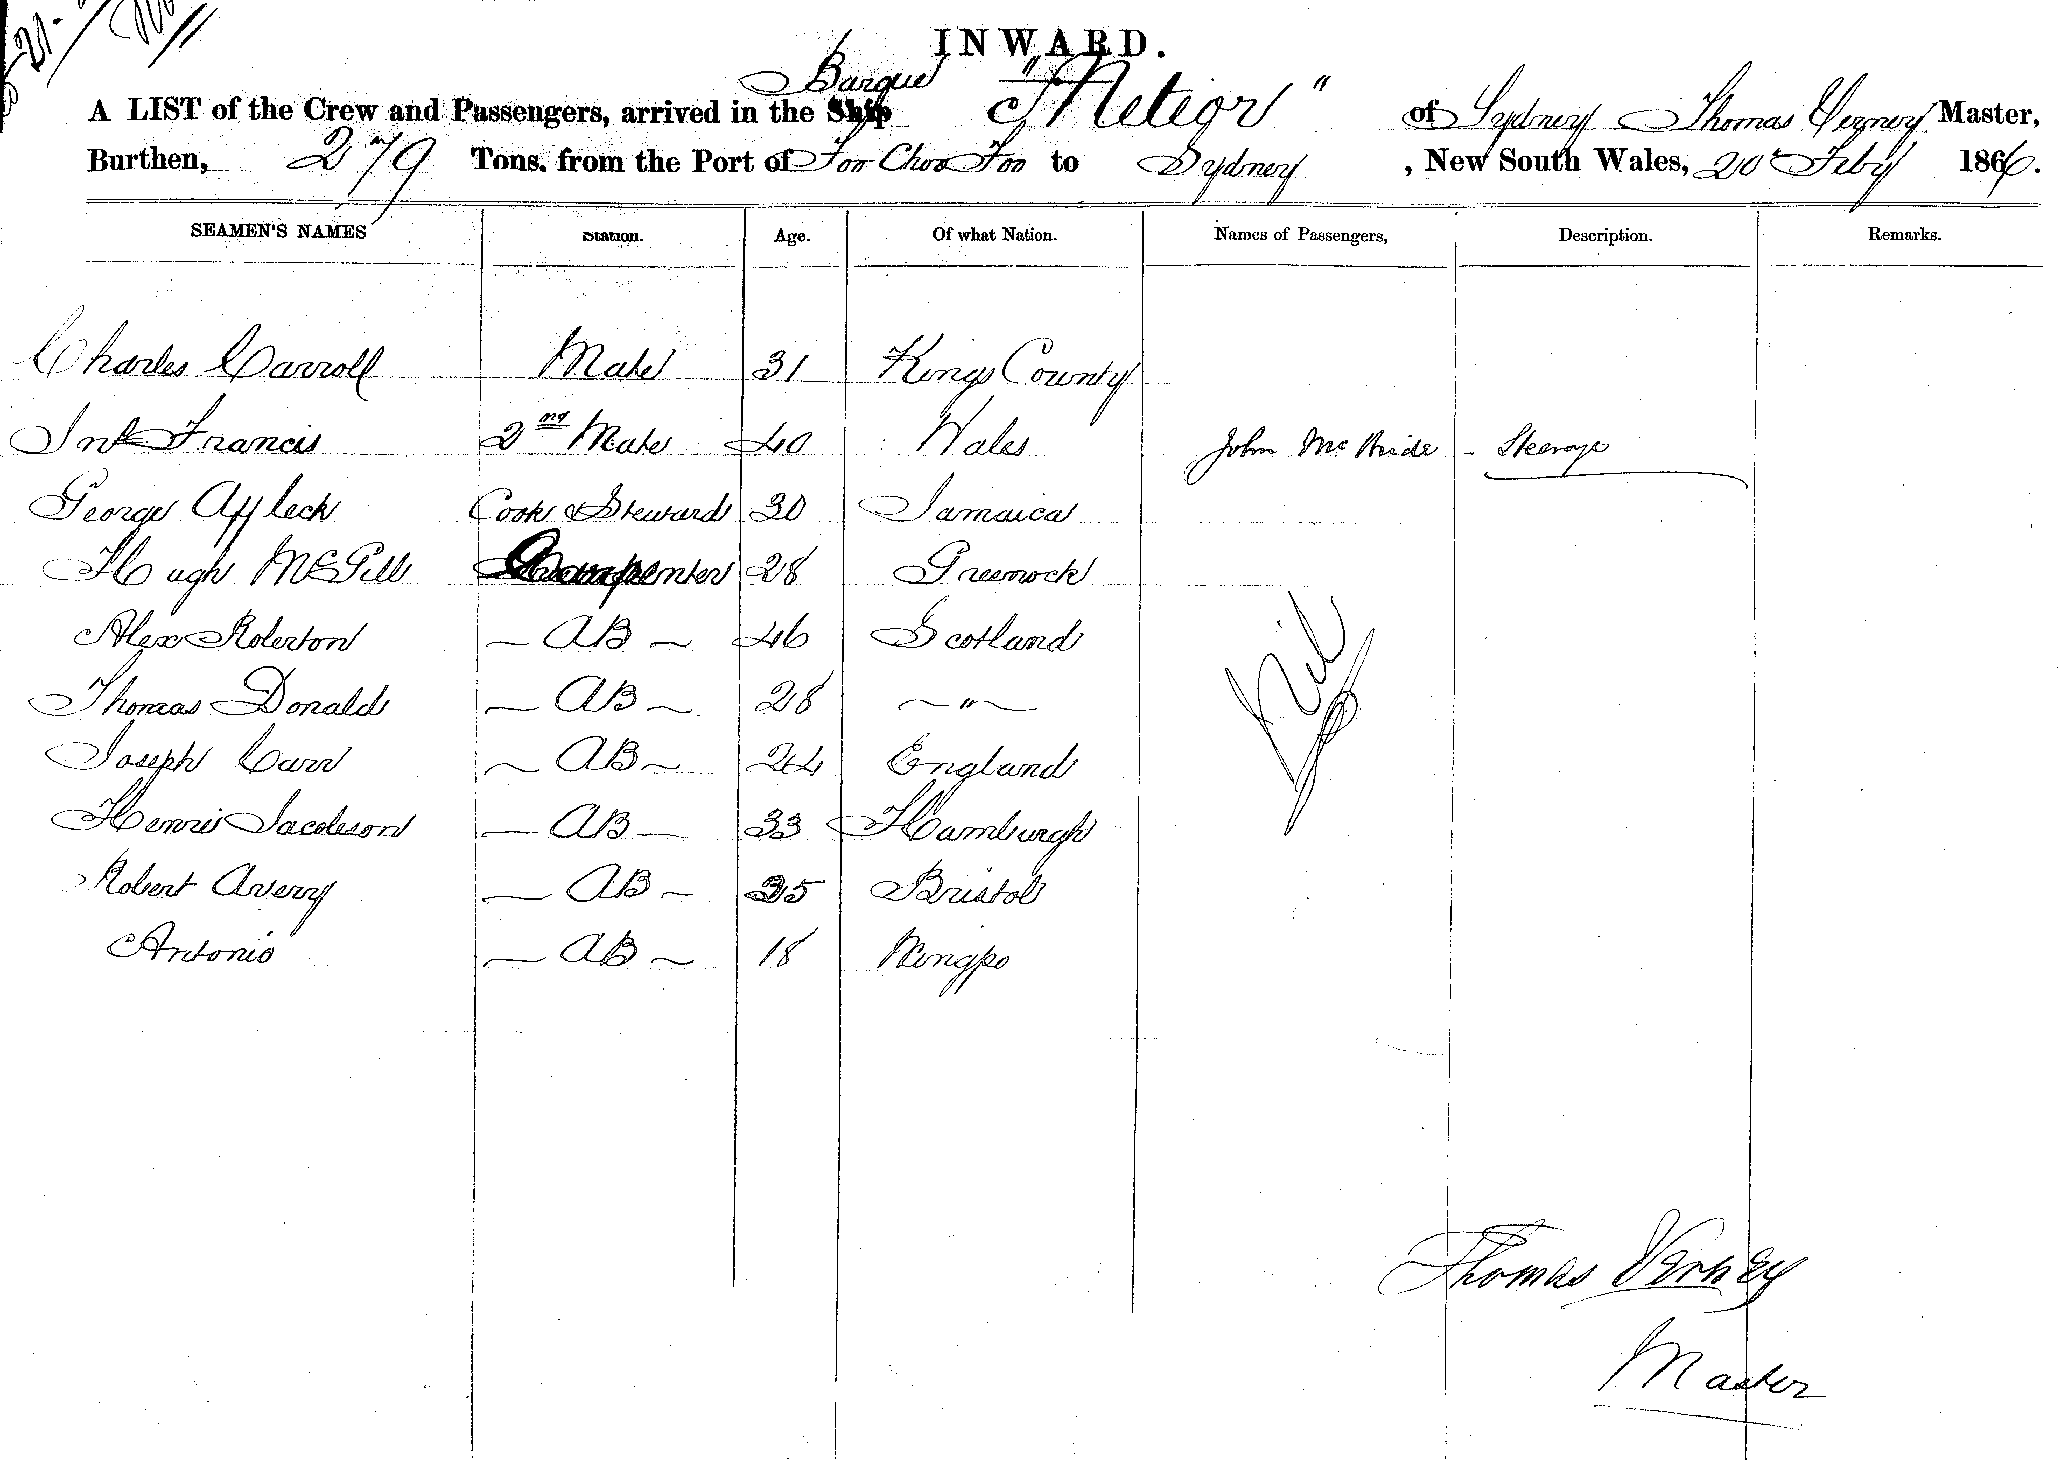 21
INWARD.
Barque
A LIST of the Crew and Passengers, arrived in the Ship "Meteor" of Sydney Thomas Verney Master,
Burthen, 279 Tons, from the Port of Foo Choo Foo to Sydney, New South Wales, 20 Feby 1866.
SEAMEN'S NAMES Station. Age. Of what Nation. Names of Passengers, Description. Remarks.
Charles Carroll Mate 31 Kings County
Jno Francis 2nd Mate 40 Wales John McBride - Steerage
George Affleck Cook & Steward 30 Jamaica
Hugh McGill Carpenter 28 Greenock
Alex Roberton — AB — 46 Scotland
Nil
Thomas Donald — AB — 28 — " —
Joseph Carr — AB — 24 England
Henri Jacobson — AB — 33 Hamburgh
Robert Avery — AB — 35 Bristol
Antonio — AB — 18 Ningpo
Thomas Verney
Master